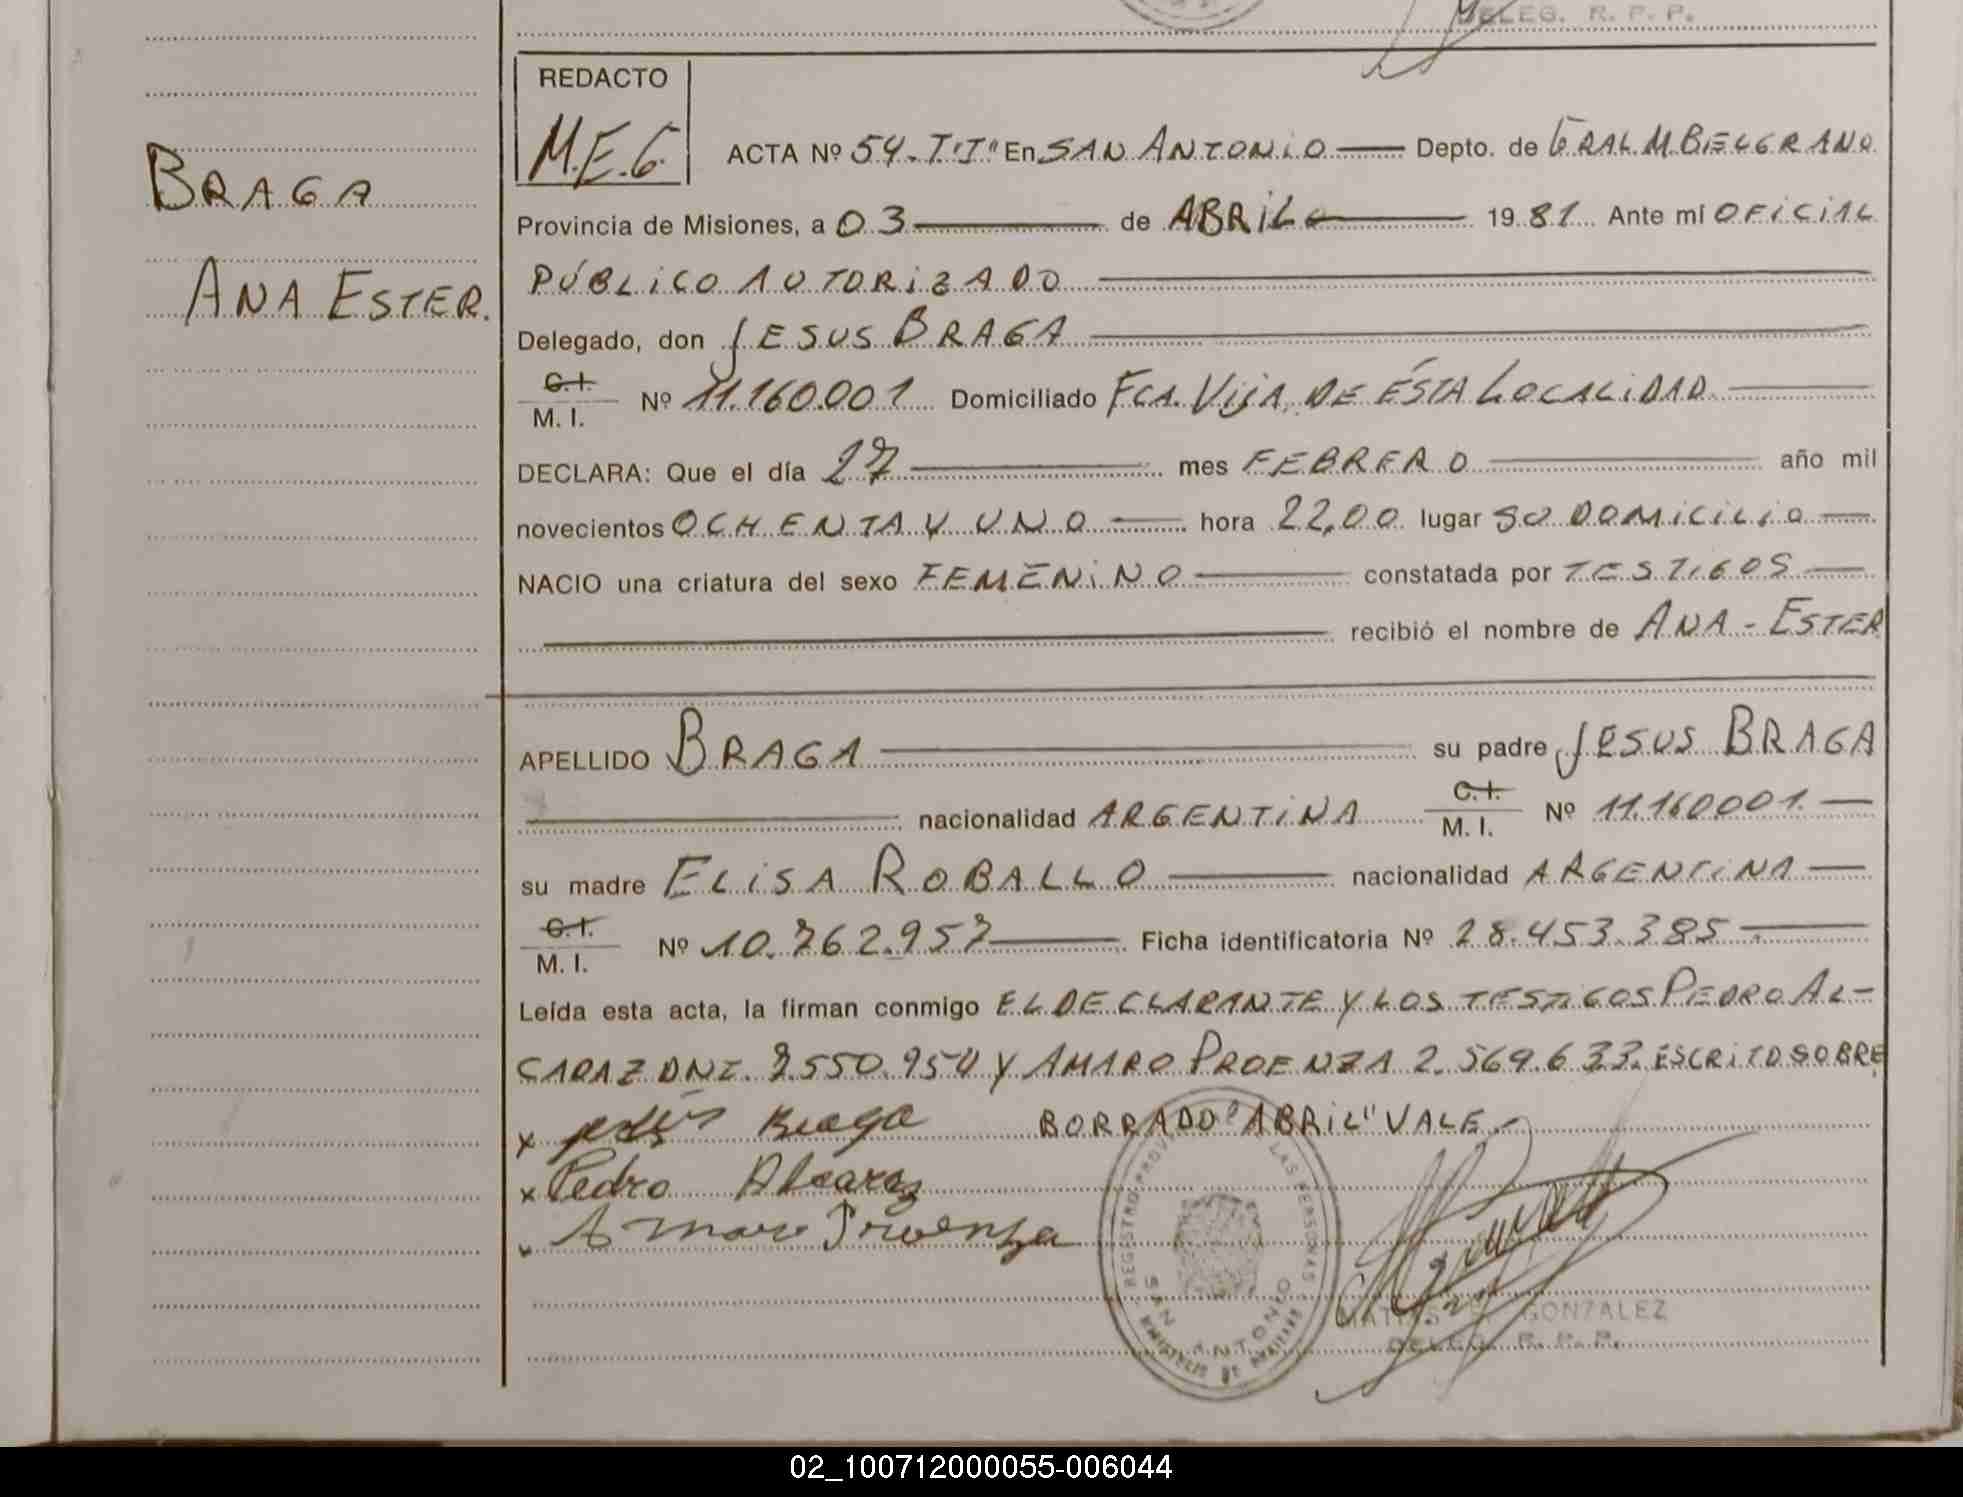 DELEG. R. P. P.
REDACTO
M.E.G.
BRAGA
ANA ESTER.
ACTA Nº 54.T"I" En SAN ANTONIO Depto. de GRAL.M.BELGRANO
Provincia de Misiones, a 03 de ABRIL 1981 Ante mí OFICIAL
PÚBLICO AUTORIZADO
Delegado, don JESUS BRAGA
C.I.
M. I. Nº 11.160.001 Domiciliado FCA. VIJA, DE ÉSTA LOCALIDAD.
DECLARA: Que el día 27 mes FEBRERO año mil
novecientos OCHENTA Y UNO hora 22,00 lugar SU DOMICILIO
NACIO una criatura del sexo FEMENINO constatada por TESTIGOS
recibió el nombre de ANA - ESTER
APELLIDO BRAGA su padre JESUS BRAGA
nacionalidad ARGENTINA C.I. M. I. Nº 11.160001.
su madre ELISA ROBALLO nacionalidad ARGENTINA
C.I.
M. I. Nº 10.762.957 Ficha identificatoria Nº 28.453.385
Leída esta acta, la firman conmigo EL DECLARANTE Y LOS TESTIGOS PEDRO AL-
CARAZ DNI. 7.550.954 Y AMARO PROENZA 2.569.633. ESCRITO SOBRE
x Jesús Braga BORRADO "ABRIL" VALE.-
x Pedro Alcaraz
x Amaro Proenza
REGISTRO PROV. LAS PERSONAS
SAN ANTONIO
GONZALEZ
DELEG. R. P. P.
02_100712000055-006044